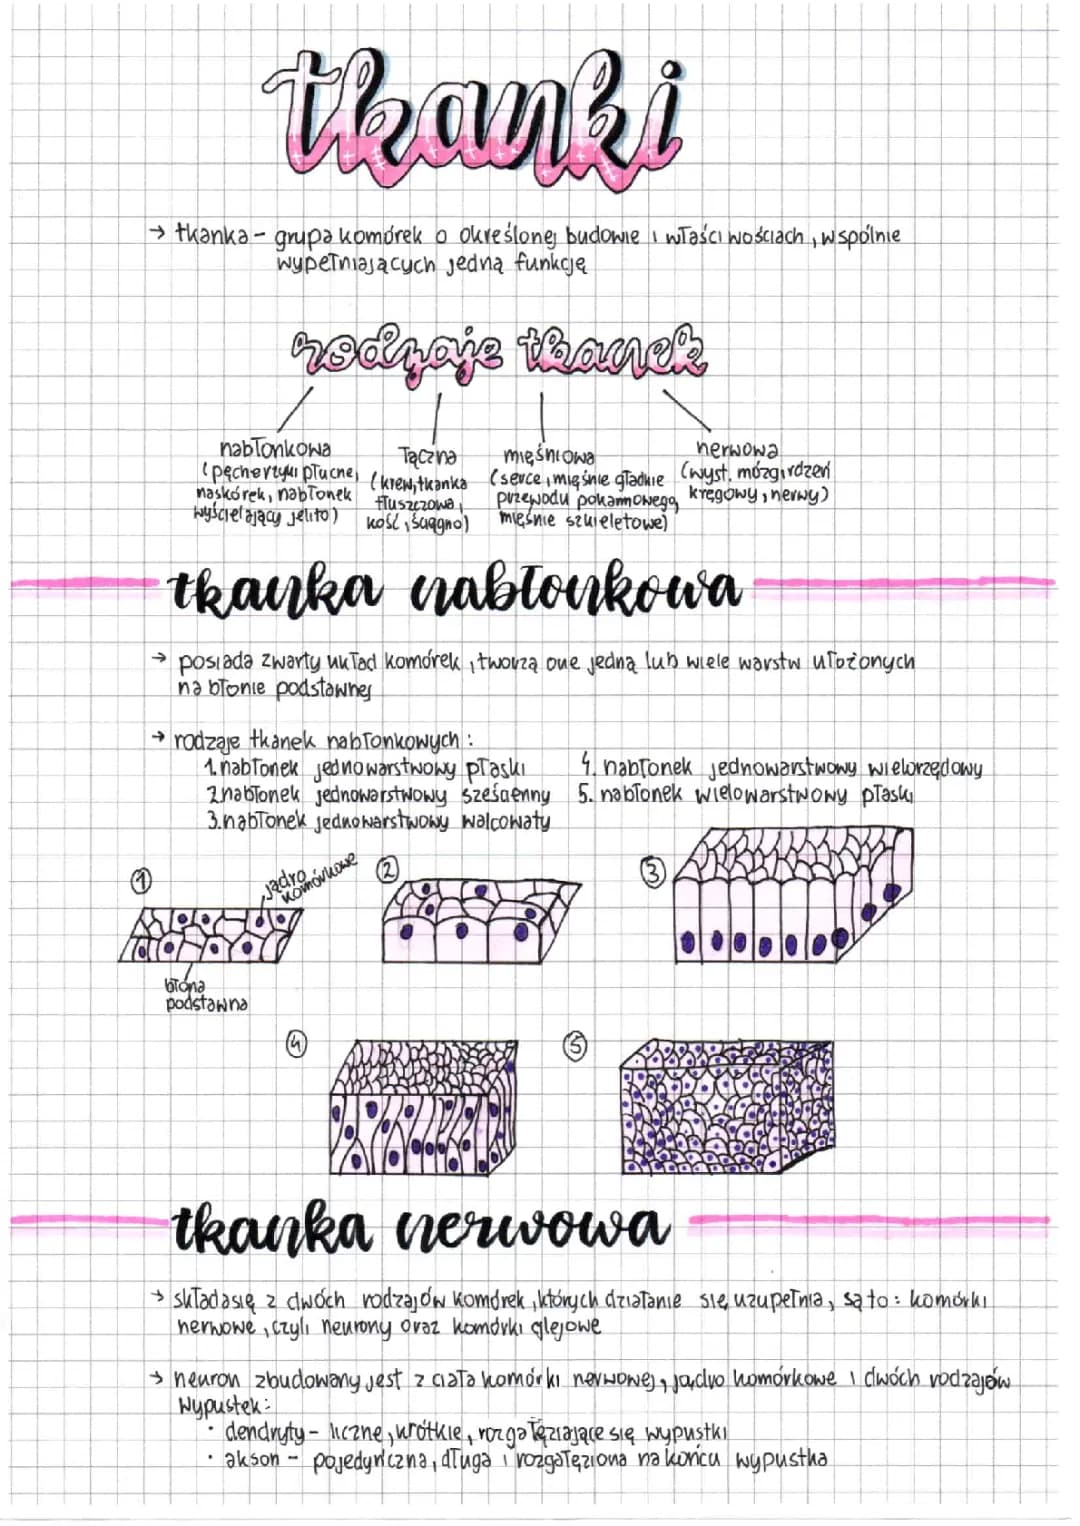 tkanki
→ tkanka - grupa komórek o określonej budowie i właściwościach, wspólnie
wypełniających jedną funkcję
rodzaje tkanek
nabłonkowa
(pęcherzyki płucne,
naskórek, nabłonek
wyścielający jelito)
łączna
(krew, tkanka
tłuszczowa,
kość, ścięgno)
mięśniowa
(serce, mięśnie gładkie
przewodu pokarmowego,
mięśnie szkieletowe)
nerwowa
(wyst. mózg, rdzeń
kręgowy, nerwy)
tkanka nabłonkowa
→ posiada zwarty układ komórek, tworzą one jedną lub wiele warstw ułożonych
na błonie podstawnej
→ rodzaje tkanek nabłonkowych:
1. nabłonek jednowarstwowy płaski
2. nabłonek jednowarstwowy sześcienny
3. nabłonek jednowarstwowy walcowaty
4. nabłonek jednowarstwowy wielorzędowy
5. nabłonek wielowarstwowy płaski
1
jądro
komórkowe
błona
podstawna
2
3
4
5
tkanka nerwowa
→ składa się z dwóch rodzajów komórek, których działanie się uzupełnia, są to: komórki
nerwowe, czyli neurony oraz komórki glejowe
→ neuron zbudowany jest z ciała komórki nerwowej, jądro komórkowe i dwóch rodzajów
wypustek:
· dendryty - liczne, krótkie, rozgałęziające się wypustki
· akson - pojedyńczna, długa i rozgałęziona na końcu wypustka